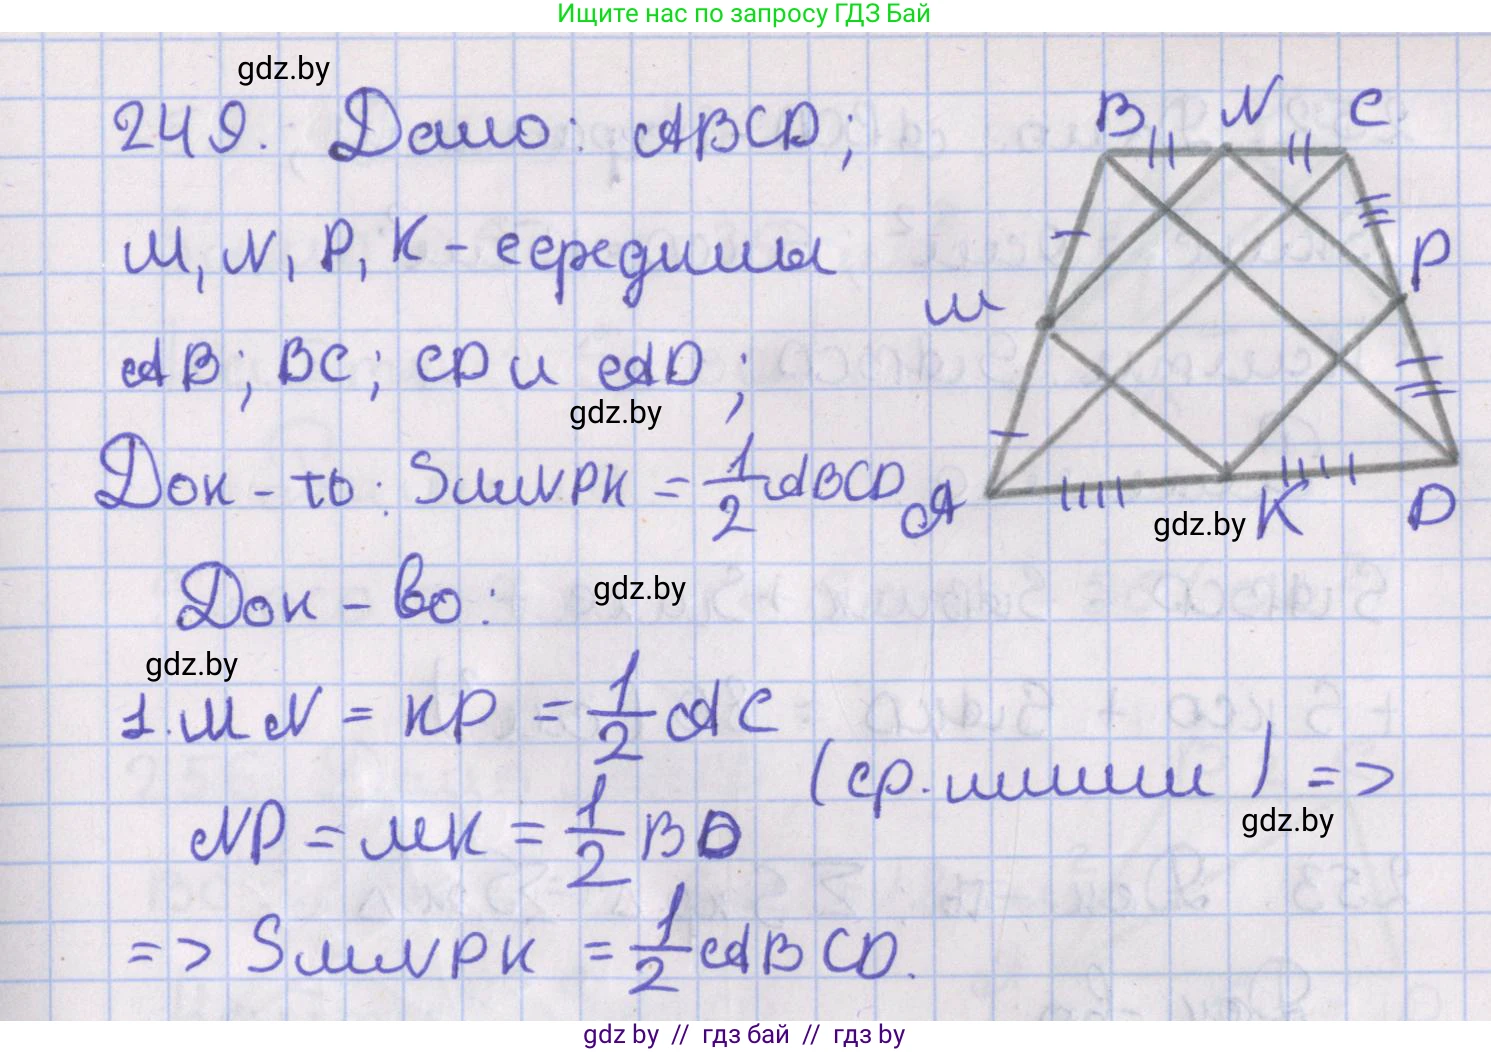 Ищите нас по запросу ГДЗ Бай
gdz.by
249. Дано: ABCD;
B N C
M, N, P, K - середины
P
M
AB; BC; CD и AD;
gdz.by
Док-ть: SMNPK = 1/2 ABCD
A K D
gdz.by
Док-во:
gdz.by
gdz.by
1. MN = KP = 1/2 AC
(ср. линии) =>
NP = MK = 1/2 BD
gdz.by
=> SMNPK = 1/2 ABCD.
gdz by // гдз бай // гдз by